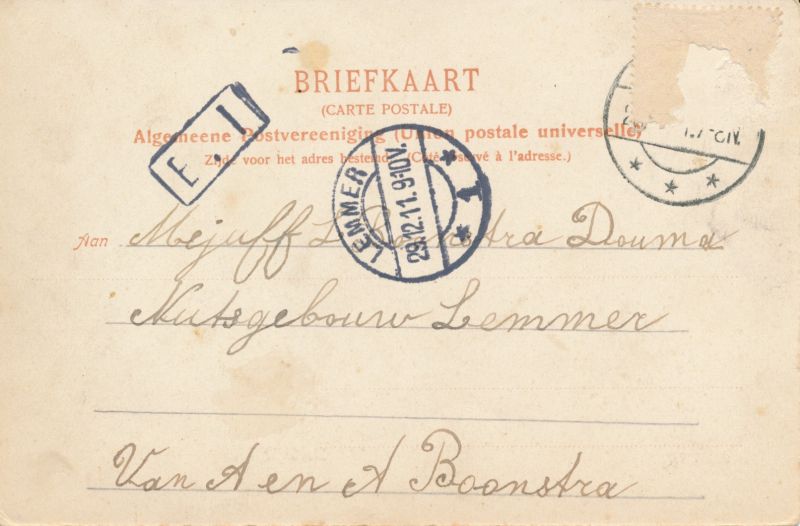 BRIEFKAART
(CARTE POSTALE)
Algemeene Postvereeniging (Union postale universelle)
Zijde voor het adres bestemd. (Côté réservé à l'adresse.)
E. I
LEMMER
29.12.11. 9-10V.
* 1 *
1.7-8N.
* * *
Aan Mejuff L Boonstra Douma
Nutsgebouw Lemmer
Van A en A Boonstra